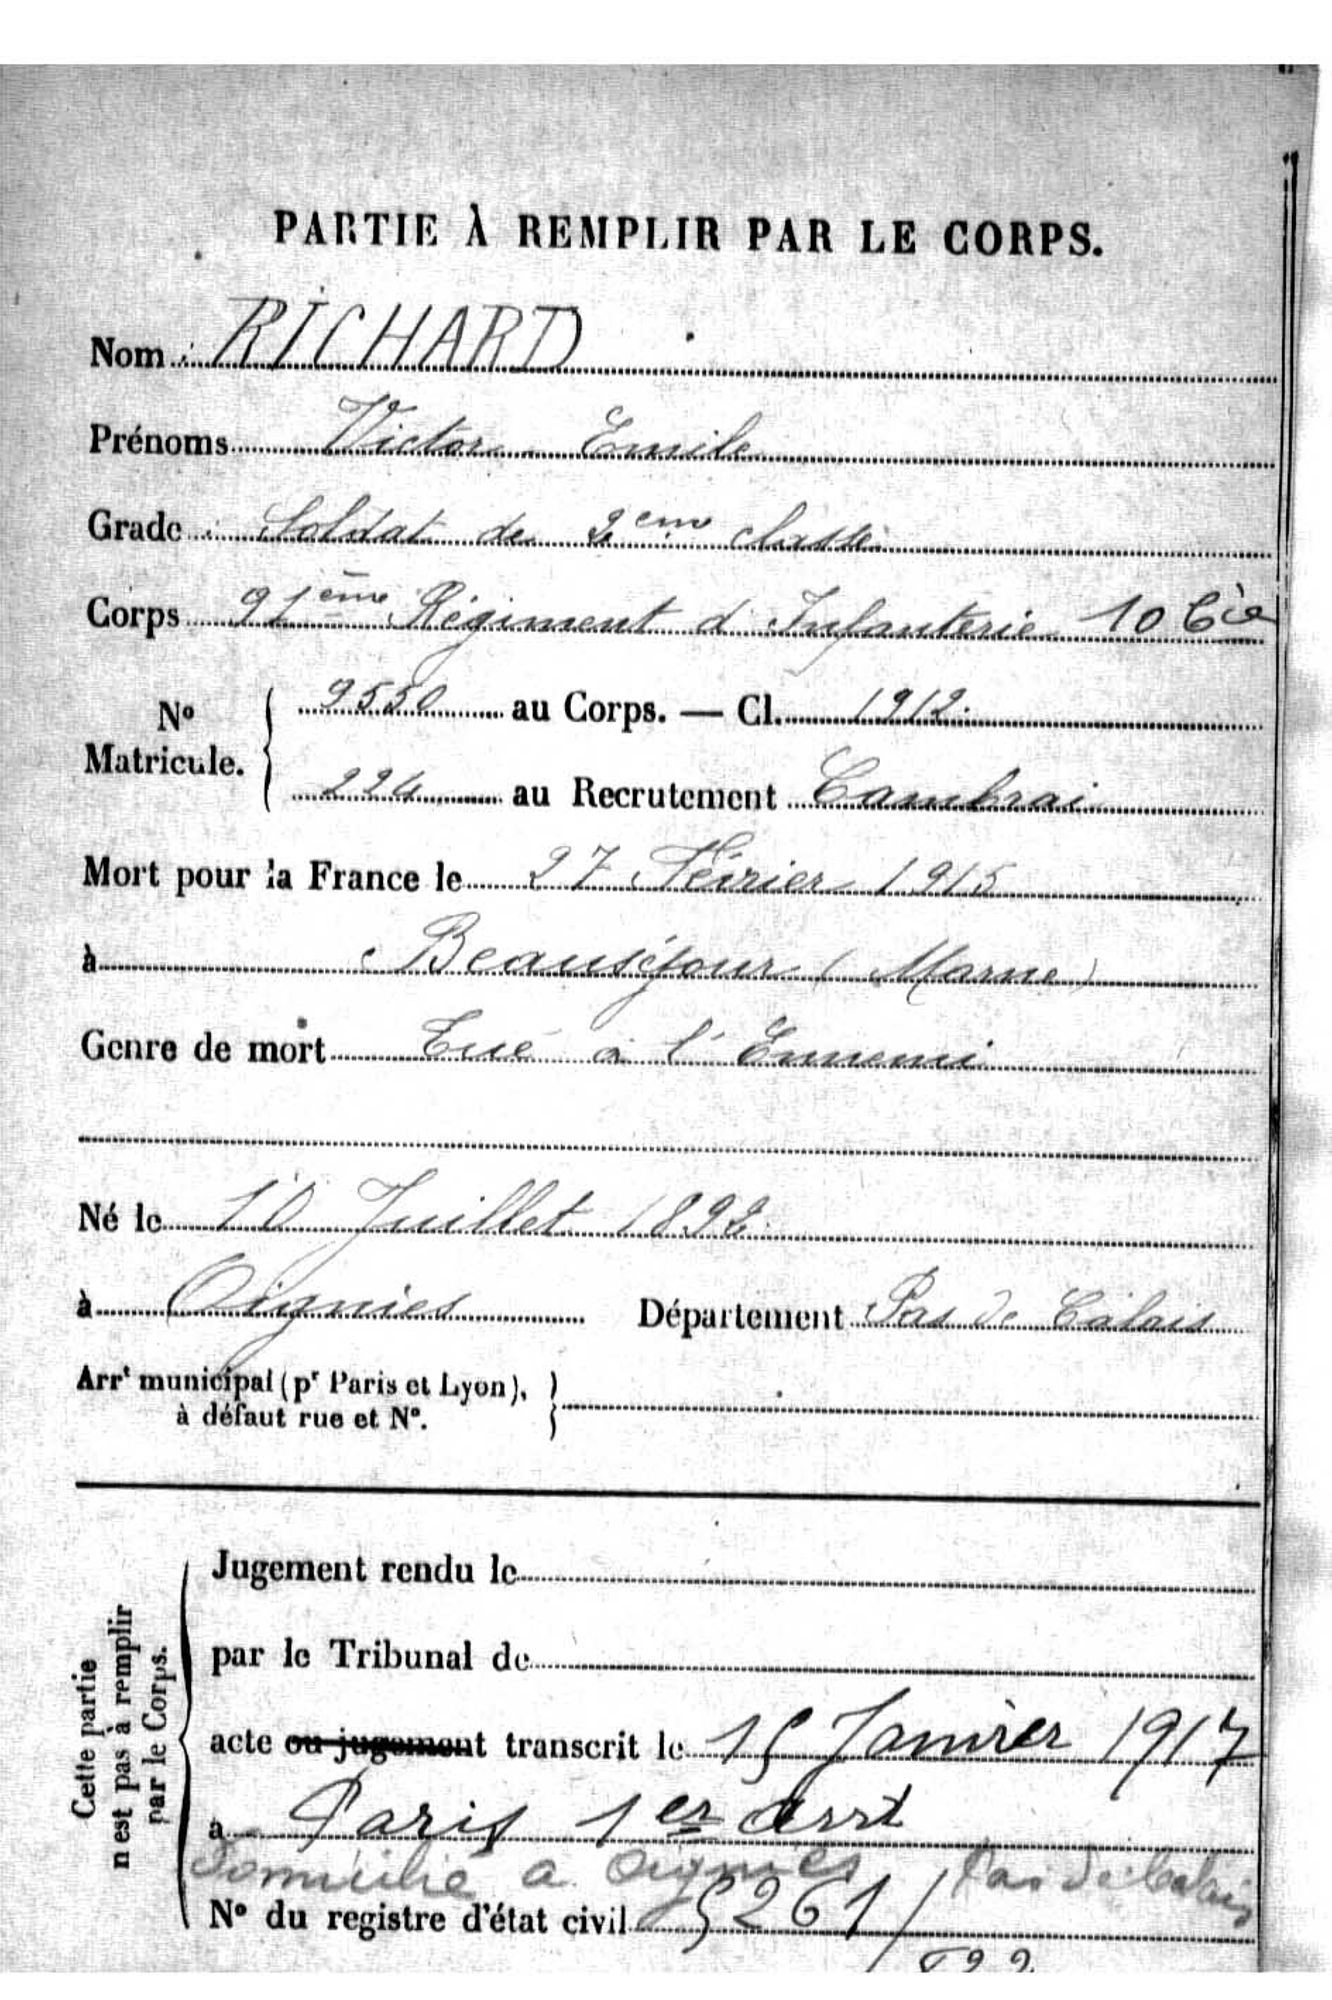 PARTIE À REMPLIR PAR LE CORPS.
Nom : RICHARD
Prénoms Victor Emile
Grade : Soldat de 2eme classe
Corps 91ème Régiment d'Infanterie 10 Cie
No Matricule. { 9550 au Corps. — Cl. 1912.
224 au Recrutement Cambrai
Mort pour la France le 27 Février 1915
à Beauséjour (Marne)
Genre de mort Tué à l'Ennemi
Né le 10 Juillet 1892
à Oignies Département Pas de Calais
Arrt municipal (pr Paris et Lyon), }
à défaut rue et No.
Cette partie
n'est pas à remplir
par le Corps.
Jugement rendu le
par le Tribunal de
acte ou jugement transcrit le 15 Janvier 1917
à Paris 1er arrt
Domicilié a Oignies Pas de Calais
No du registre d'état civil 5261/